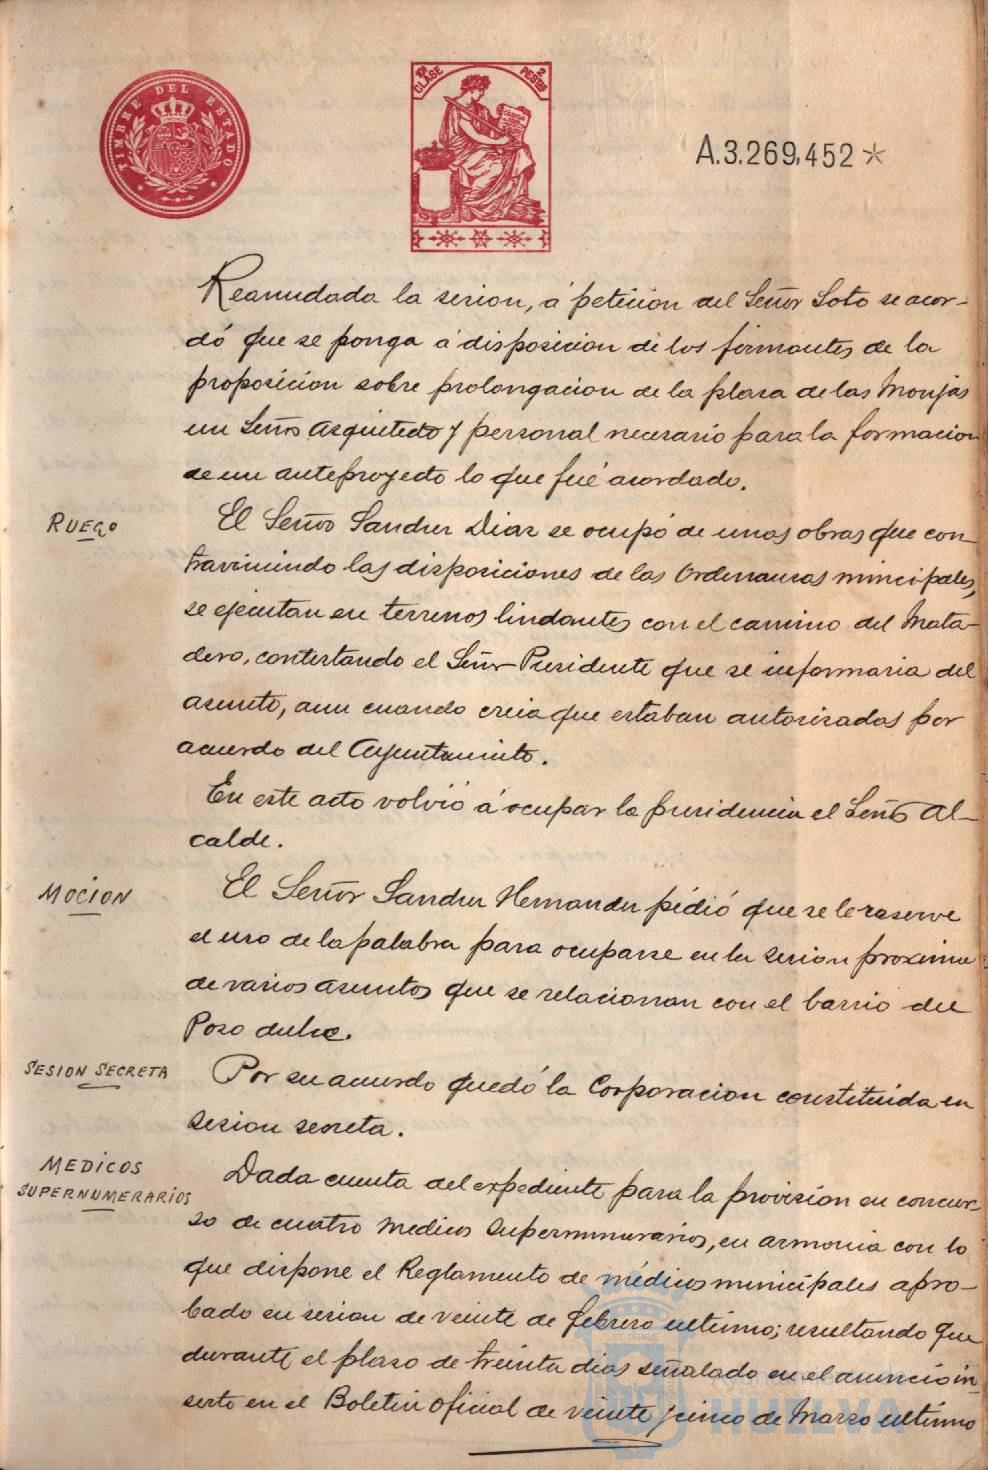 TIMBRE DEL ESTADO
10ª CLASE
2 PESETAS
A.3.269,452*
Reanudada la sesion, á peticion del Señor Soto se acor-
dó que se ponga á disposicion de los firmantes de la
proposicion sobre prolongacion de la plasa de las Monjas
un Señor Arquitecto y personal necesario para la formacion
de un anteproyecto lo que fué acordado.
RUEGO
El Señor Sanchez Diaz se ocupó de unas obras que con-
traviniendo las disposiciones de las Ordenansas municipales,
se ejecutan en terrenos lindantes con el camino del Mata-
dero, contestando el Señor Presidente que se informaria del
asunto, aun cuando creia que estaban autorisadas por
acuerdo del Ayuntamiento.
En este acto volvió á ocupar la presidencia el Señor Al-
calde.
MOCION
El Señor Sanchez Hernandez pidió que se le reserve
el uso de la palabra para ocuparse en la sesion proxima
de varios asuntos que se relacionan con el barrio del
Poso dulce.
SESION SECRETA
Por su acuerdo quedó la Corporacion constituida en
sesion secreta.
MEDICOS
SUPERNUMERARIOS
Dada cuenta del expediente para la provision en concur-
so de cuatro medicos supernumerarios, en armonia con lo
que dispone el Reglamento de médicos municipales apro-
bado en sesion de veinte de febrero ultimo; resultando que
durante el plaso de treinta dias señalado en el anuncio in-
serto en el Boletin Oficial de veinte y cinco de Marzo ultimo
Ayuntamiento de
HUELVA